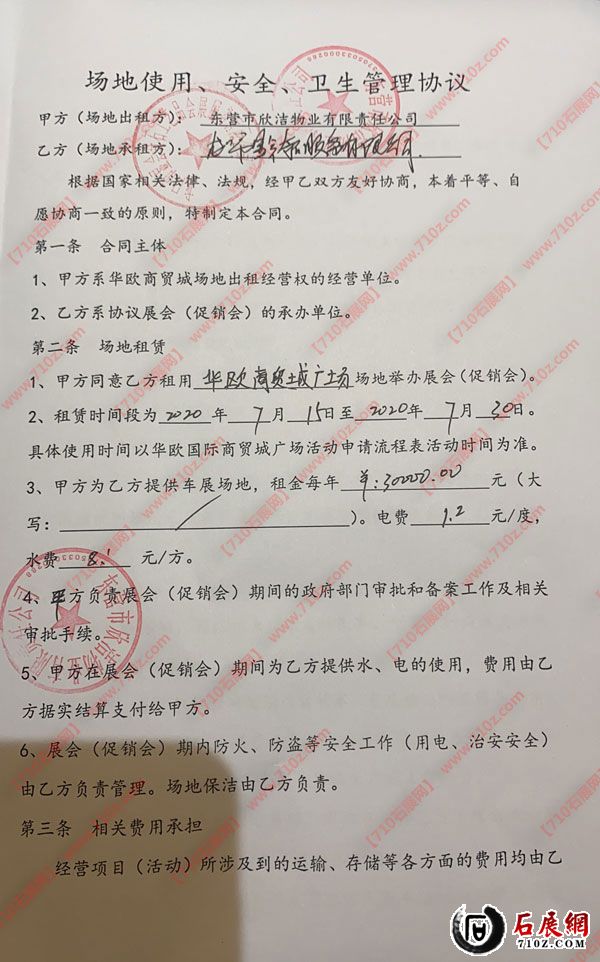 场地使用、安全、卫生管理协议
甲方（场地出租方）：东营市欣洁物业有限责任公司
乙方（场地承租方）：
根据国家相关法律、法规，经甲乙双方友好协商，本着平等、自
愿协商一致的原则，特制定本合同。
第一条 合同主体
1、甲方系华欧商贸城场地出租经营权的经营单位。
2、乙方系协议展会（促销会）的承办单位。
第二条 场地租赁
1、甲方同意乙方租用 华欧商贸城广场 场地举办展会（促销会）。
2、租赁时间段为 2020 年 7 月 15 日至 2020 年 7 月 30 日。
具体使用时间以华欧国际商贸城广场活动申请流程表活动时间为准。
3、甲方为乙方提供车展场地，租金每年 ¥:30000.00 元（大
写： ）。电费 1.2 元/度，
水费 8.1 元/方。
4、甲方负责展会（促销会）期间的政府部门审批和备案工作及相关
审批手续。
5、甲方在展会（促销会）期间为乙方提供水、电的使用，费用由乙
方据实结算支付给甲方。
6、展会（促销会）期内防火、防盗等安全工作（用电、治安安全）
由乙方负责管理。场地保洁由乙方负责。
第三条 相关费用承担
经营项目（活动）所涉及到的运输、存储等各方面的费用均由乙
【710石展网】www.710z.com
石展網
710Z.COM